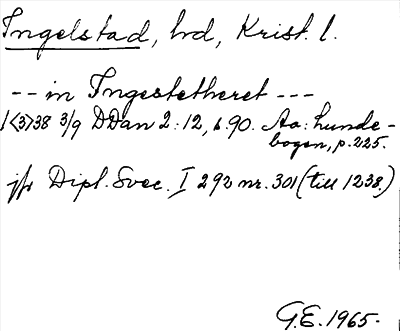 Ingelstad, hd, Krist. l.
-- in Ingestetheret ---
1<3>38 3/9 DDan 2:12, s.90. Aa: hunde-
bogen, p.225.
jfr Dipl. Svec. I 292 nr. 301 (till 1238.)
G.E. 1965.